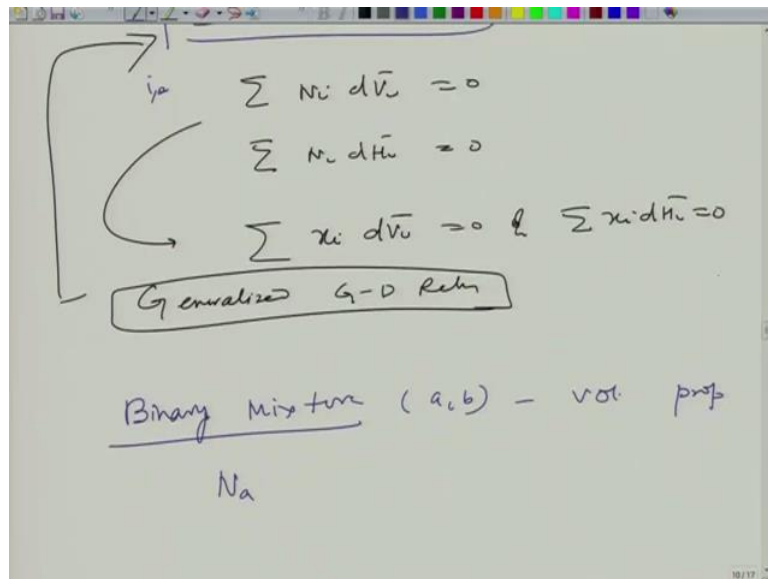 i,e
Σ Ni dV̄i = 0
Σ Ni dH̄i = 0
Σ xi dV̄i = 0 & Σ xi dH̄i = 0
Generalized G-D Reln
Binary Mixture (a,b) - vol. prop
Na
10/17